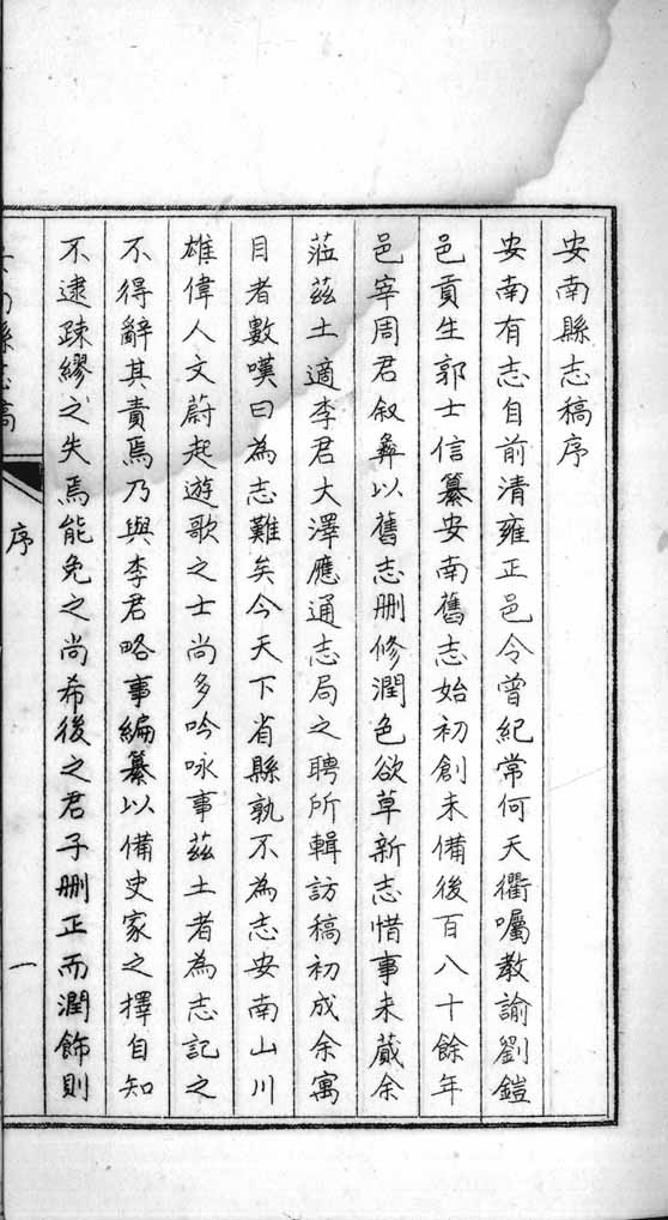 安南縣志稿序
安南有志自前清雍正邑令曾紀常何天衢囑教諭劉鎧
邑貢生郭士信纂安南舊志始初創未備後百八十餘年
邑宰周君叙彝以舊志刪修潤色欲草新志惜事未蕆余
蒞茲土適李君大澤應通志局之聘所輯訪稿初成余寓
目者數嘆曰為志難矣今天下省縣孰不為志安南山川
雄偉人文蔚起遊歌之士尚多吟咏事茲土者為志記之
不得辭其責焉乃與李君略事編纂以備史家之擇自知
不逮疎繆之失焉能免之尚希後之君子刪正而潤飾則
安南縣志稿
序
一